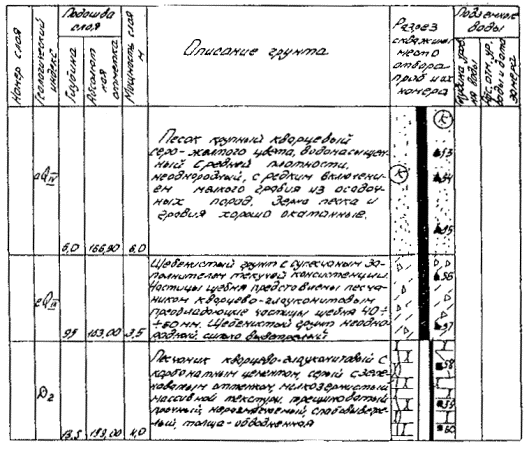 Номер слоя
Геологический индекс
Подошва слоя
Глубина
Абсолютная отметка
Мощность слоя м
Описание грунта
Разрез
скважины
место
отбора
проб и их
номера
Подземные
воды
аQIV
6,0
166,90
6,0
Песок крупный кварцевый
серо-желтого цвета, водонасыщен-
ный средней плотности,
неоднородный, с редким включени-
ем мелкого гравия из осадоч-
ных пород. Зерна песка и
гравия хорошо окатанные.
К
К
53
54
55
еQIV
9,5
163,00
3,5
Щебенистый грунт с супесчаным за-
полнителем текучей консистенции.
Частицы щебня представлены песча-
ником кварцево-глауконитовым
преобладающие частицы щебня 40÷
÷60 мм. Щебенистый грунт неодно-
родный, сильно выветрелый
56
57
D2
13,5
159,00
4,0
Песчаник кварцево-глауконитовый с
карбонатным цементом, серый с зеле-
новатым оттенком, мелкозернистый
массивной текстуры, трещиноватый
прочный, неразмягчаемый, слабовыветре-
лый, толща - обводненная
58
59
60